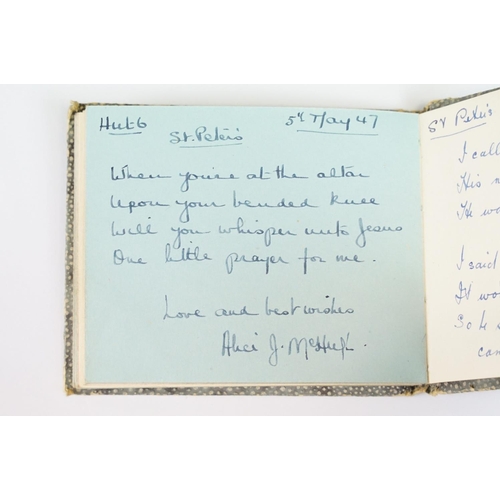 Hut 6
St. Peter's
5th May 47
When you're at the altar
Upon your bended knee
Will you whisper unto Jesus
One little prayer for me.
Love and best wishes
Alice J. McHugh.
St Peter's
I call
His
He wo
I said
It wo
So he
can